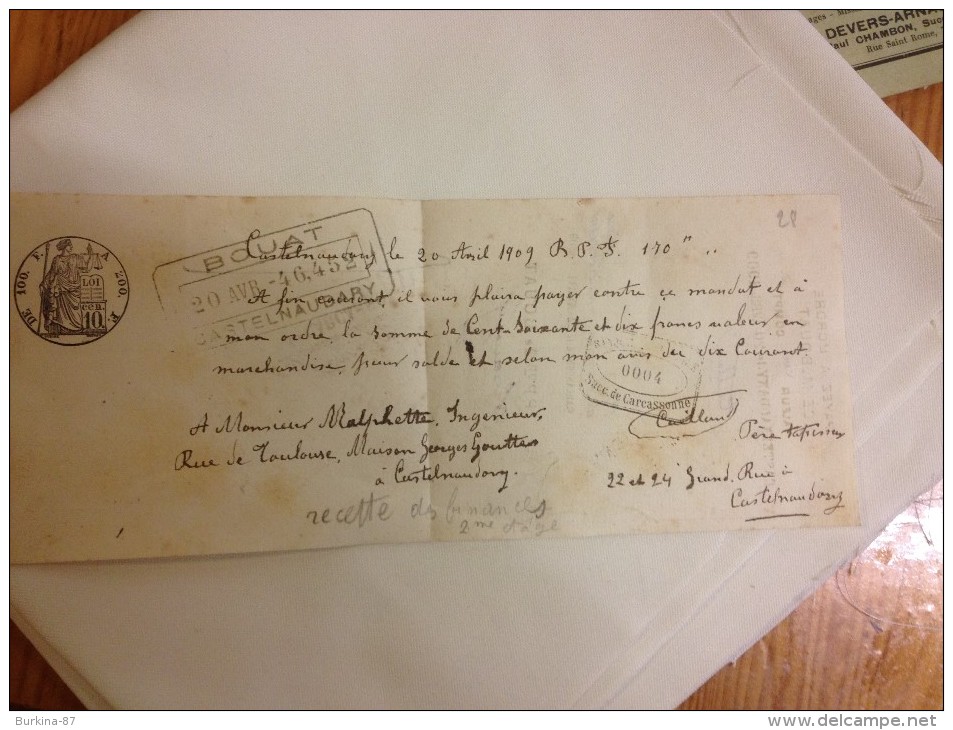 DEVERS-ARNA
Paul CHAMBON, Suc
Rue Saint Rome,
28
DE 100. F. A 200. F.
LOI
10
BOUAT
20 AVR -4 6,452
CASTELNAUDARY
Castelnaudary le 20 Avril 1909 B.P.F. 170 " ..
A fin courant, il vous plaira payer contre ce mandat et à
mon ordre, la somme de Cent-Soixante et dix francs valeur en
marchandise, pour solde et selon mon avis du dix Courant.
0004
Succ. de Carcassonne
A Monsieur Malphette, Ingenieur,
Père tapissier
Rue de Toulouse, Maison Georges Goutte
22 et 24 Grand. Rue à
à Castelnaudary.
Castelnaudary
recette des finances
2me étage
Burkina-87
www.delcampe.net